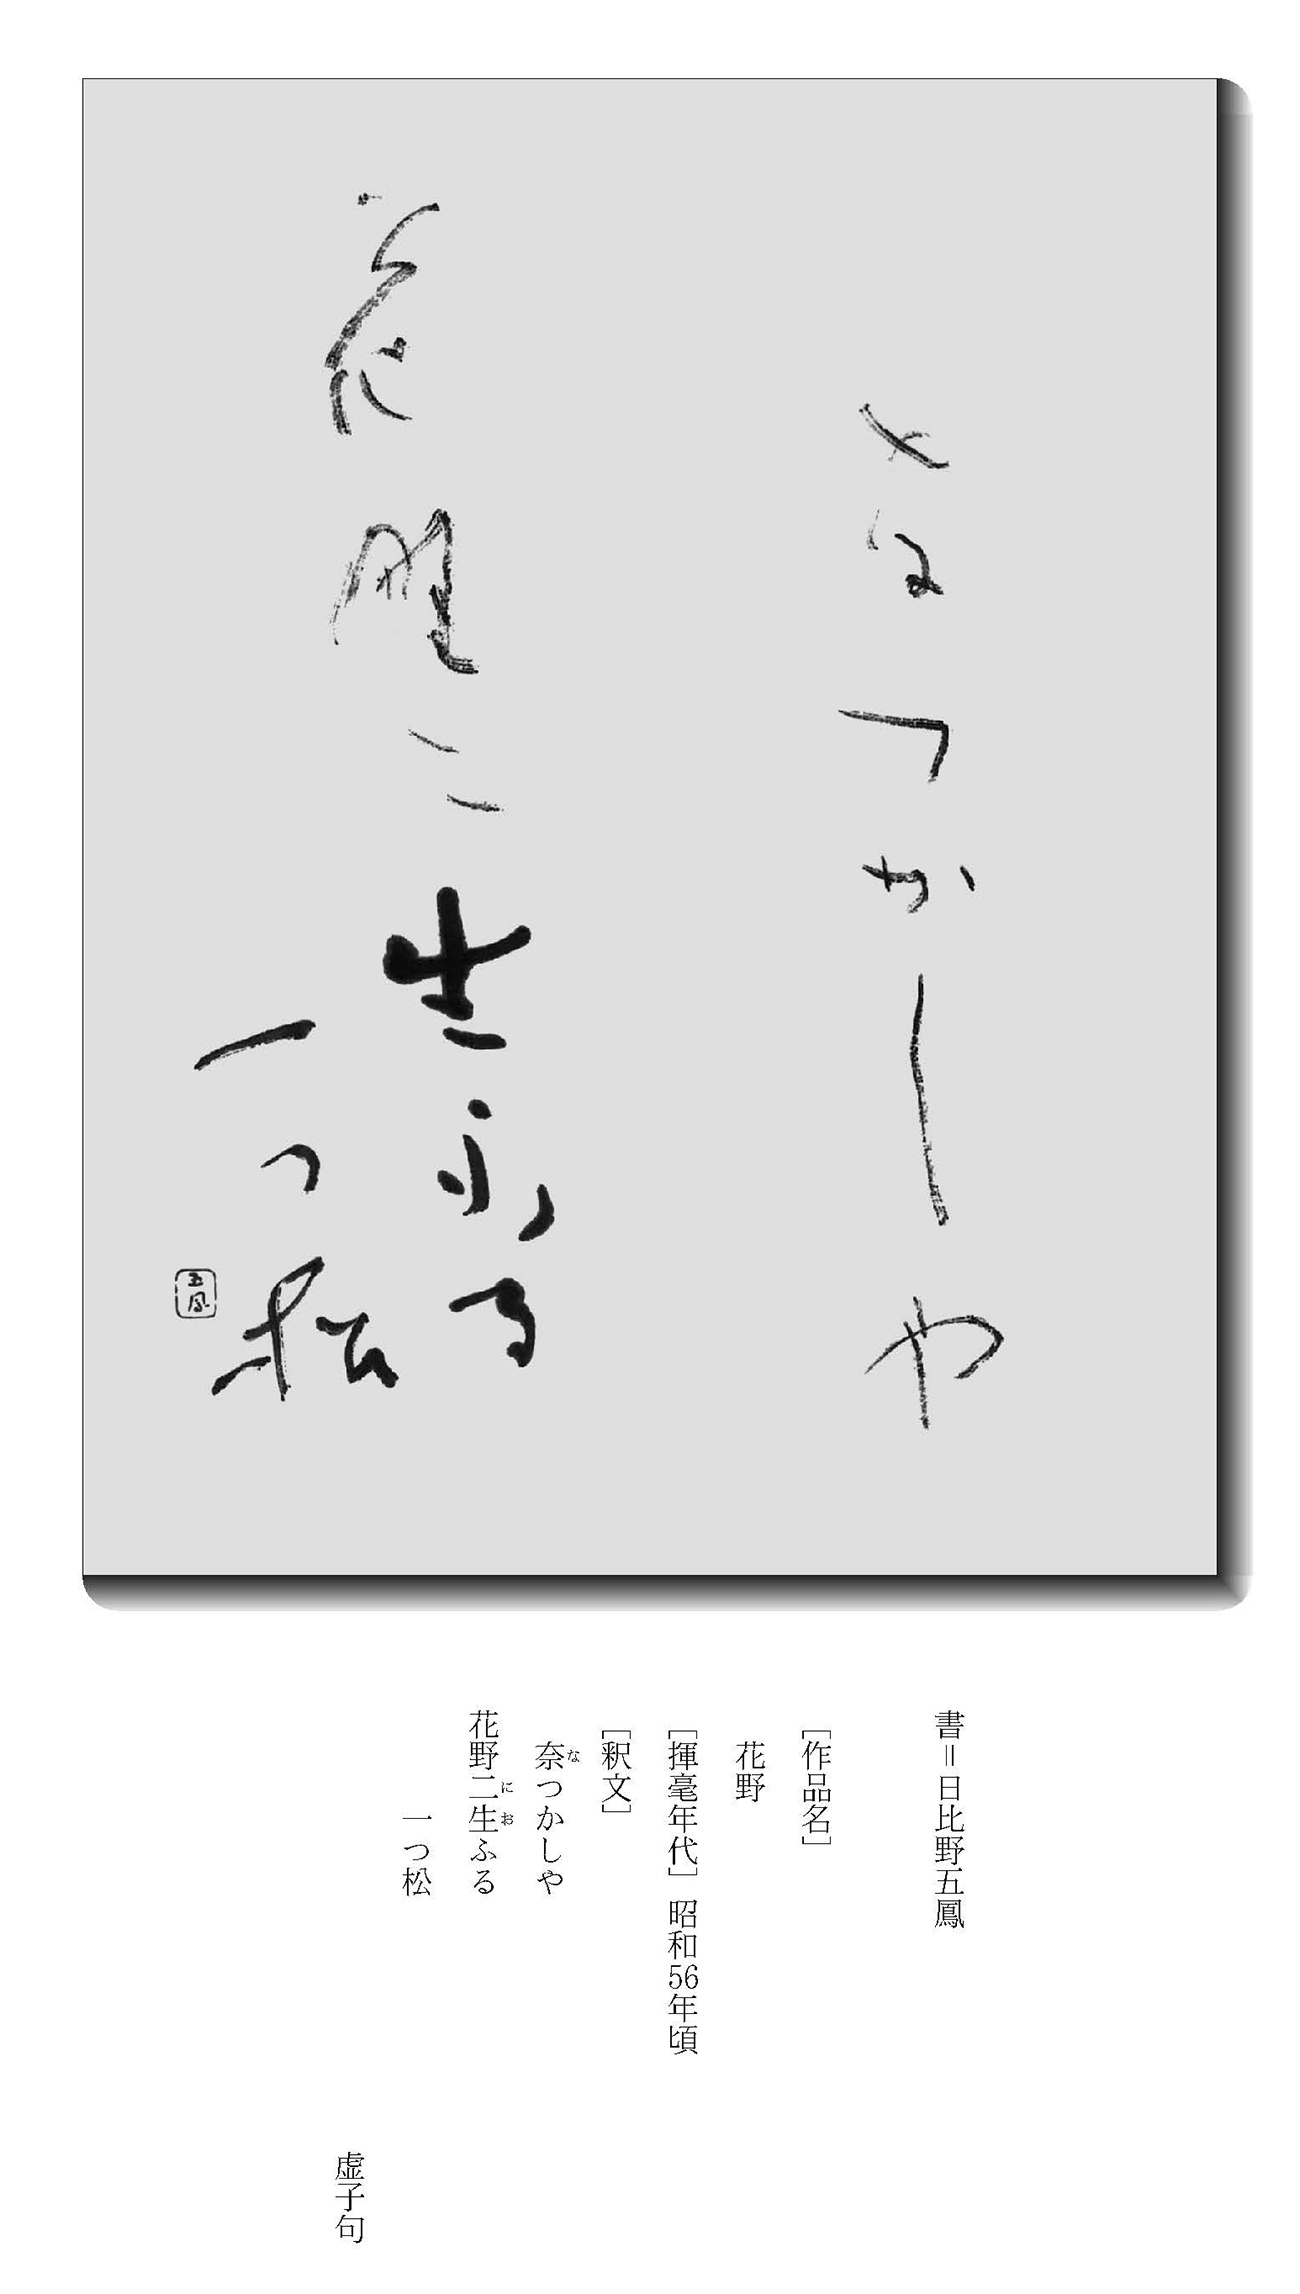 奈つかしや
花野二生ふる
一つ松
五鳳
書＝日比野五鳳
［作品名］
花野
［揮毫年代］昭和56年頃
［釈文］
奈つかしや
な
花野二生ふる
に お
一つ松
虚子句